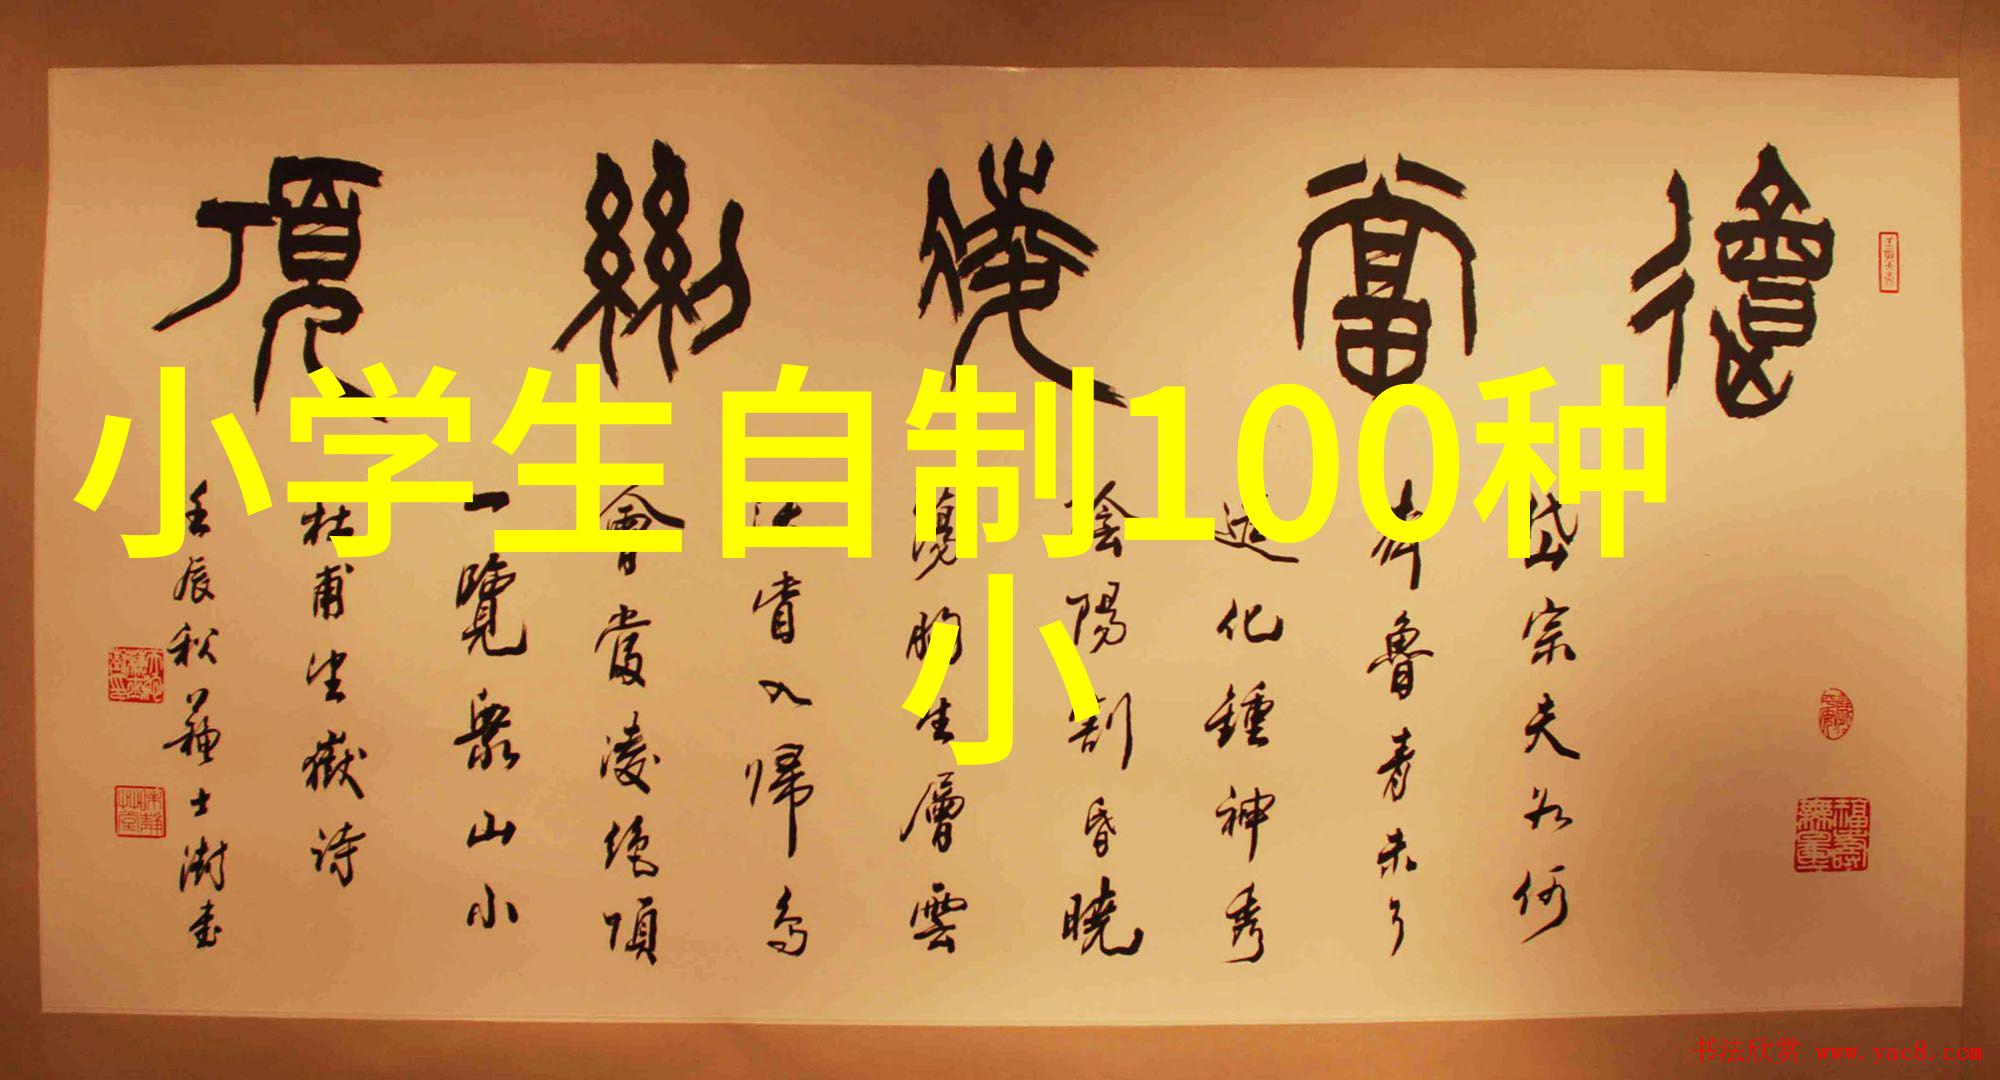 小学生自制100种
小
會當凌絕頂
岱宗夫如何
齊魯青未了
造化鍾神秀
陰陽割昏曉
蕩胸生層雲
決眥入歸鳥
會當凌絕頂
一覽眾山小
杜甫望嶽詩
壬辰秋蘇士澍書
福壽無量
书法欣赏 www.yac8.com